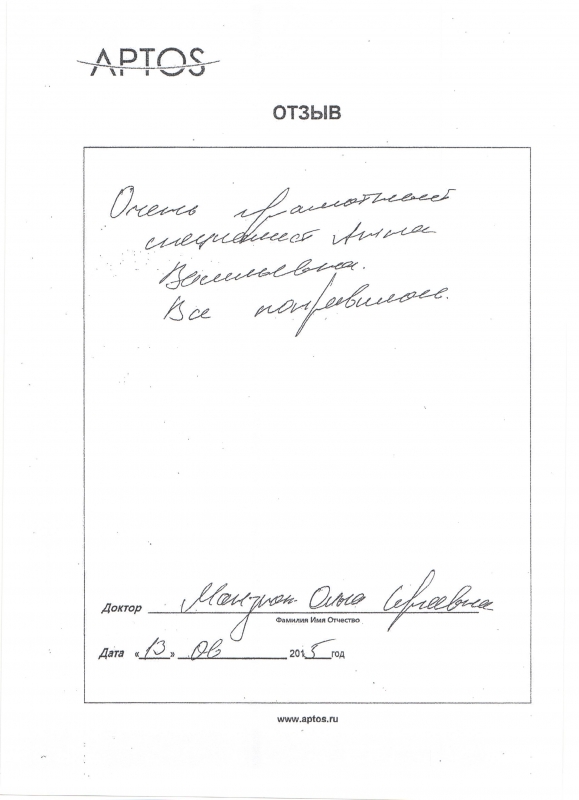 APTOS
ОТЗЫВ
Очень грамотный
специалист Анна
Васильевна.
Все понравилось.
Доктор Ольга Сергеевна
Фамилия Имя Отчество
Дата «13» 2015 год
www.aptos.ru